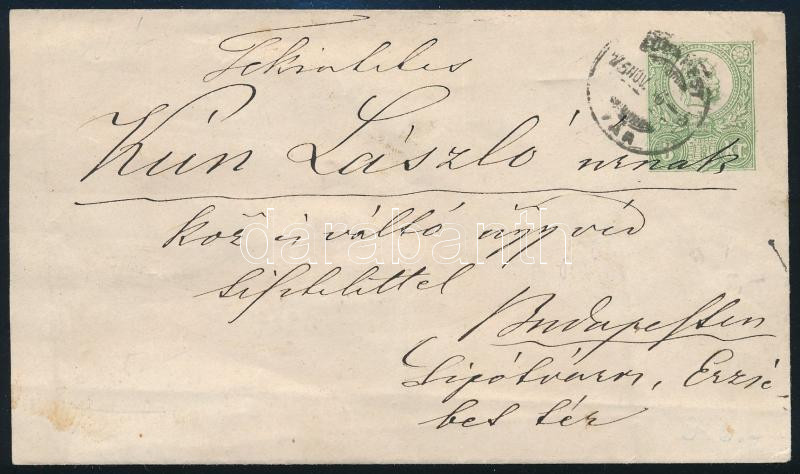 Tekintetes
Kún László úrnak
köz és váltó ügyvéd
tisztelettel
Budapesten
Lipótváros, Erzsé-
bet tér
BUDAPEST
75 NOV.
darabanth